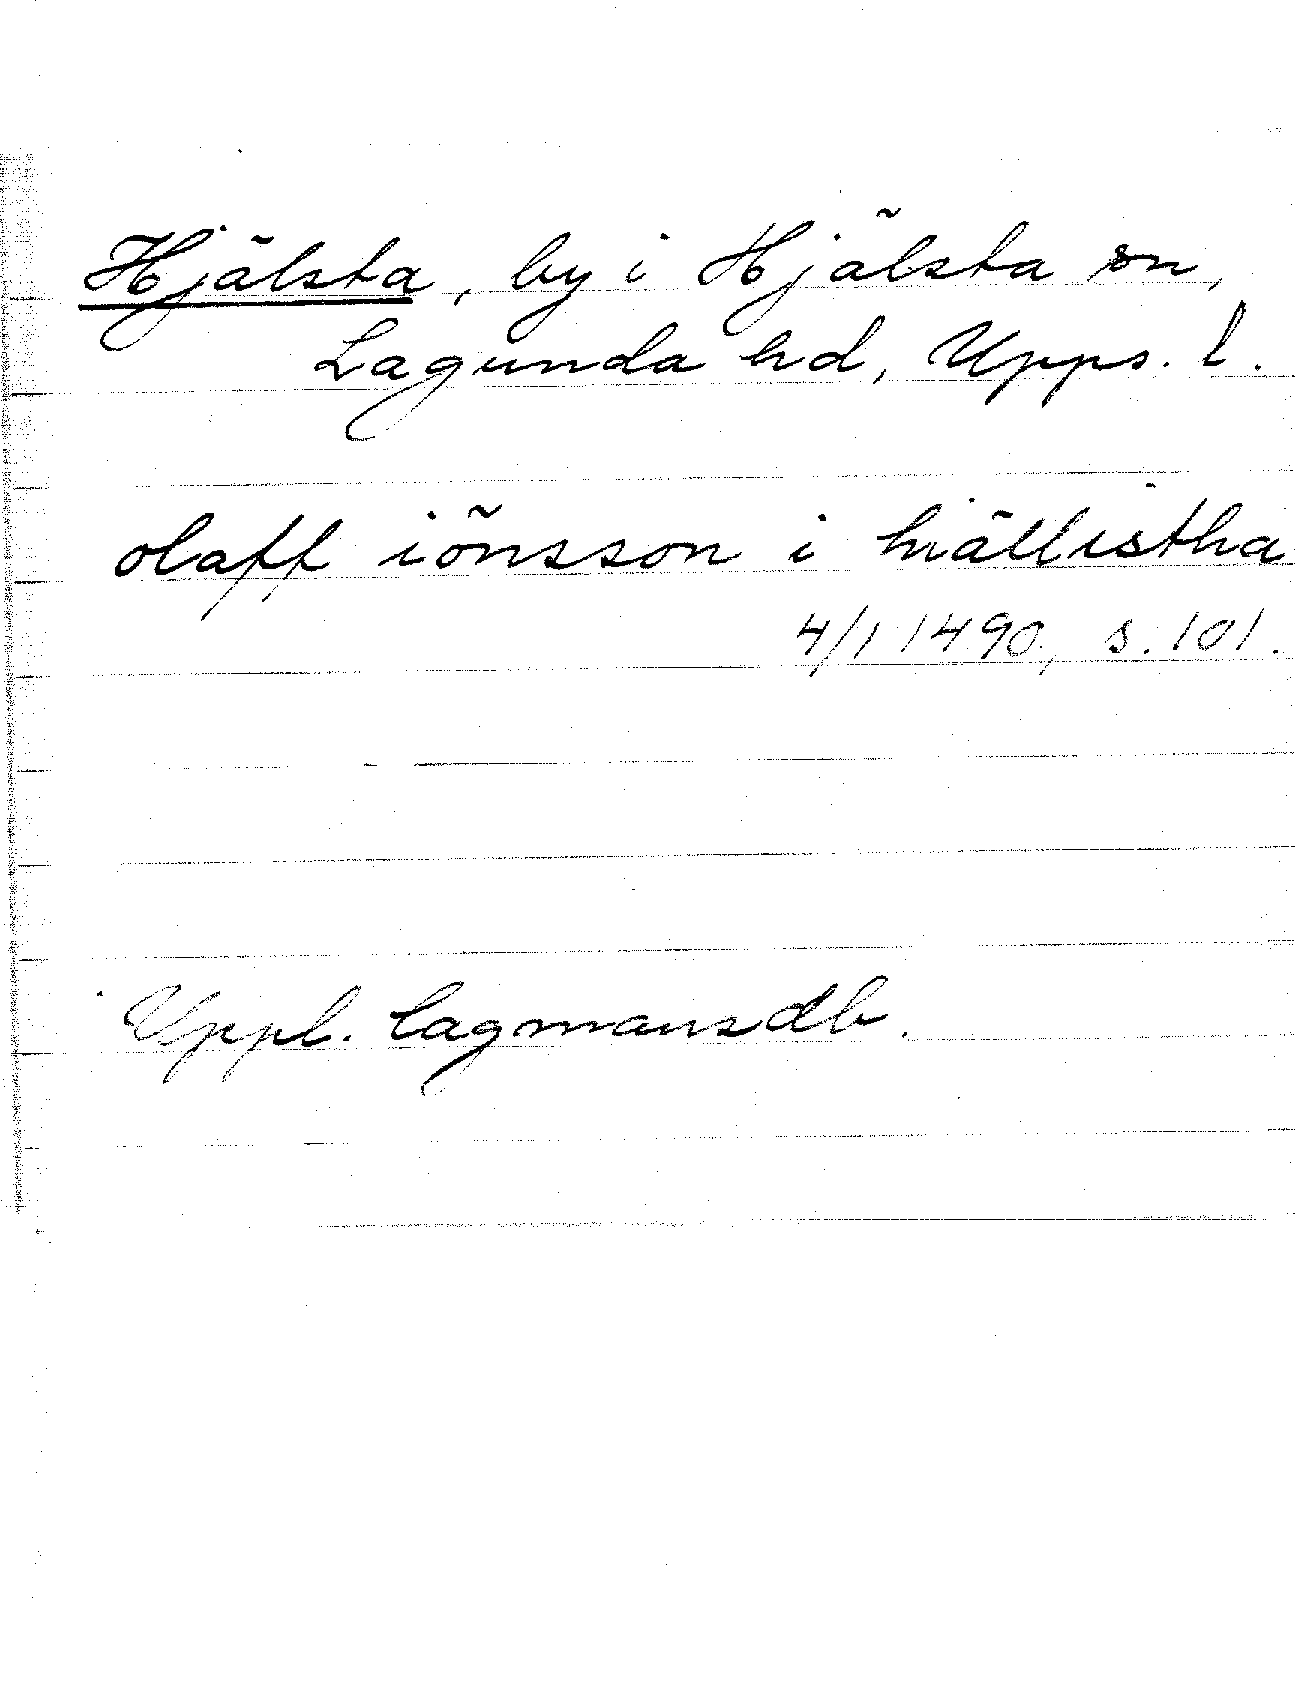 Hjälsta, by i Hjälsta sn,
Lagunda hd, Upps. l.
olaff iönsson i hiällistha
4/1 1490, s. 101.
Uppl. lagmansdb.